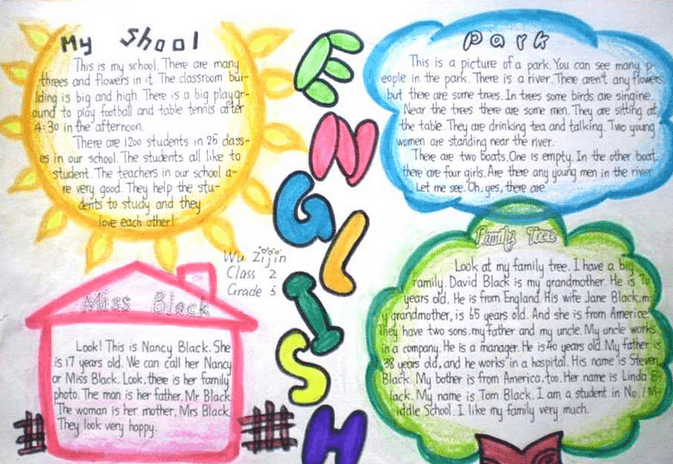 My shool
This is my school. There are many
threes and flowers in it. The classroom bui-
lding is big and high. There is a big playgr-
ound to play football and table tennis after
4:30 in the afternoon.
There are 1200 students in 25 class-
es in our school. The students all like to
student. The teachers in our school a-
re very good. They help the stu-
dents to study and they
love each other!
ENGLISH
Wu Zijin
Class 2
Grade 3
Park
This is a picture of a park. You can see many p-
eople in the park. There is a river. There aren't any flowers,
but there are some trees. In trees some birds are singine.
Near the trees there are some men. They are sitting at
the table. They are drinking tea and talking. Two young
women are standing near the river.
There are two boats. One is empty. In the other boat,
there are four girls. Are there any young men in the river
Let me see. Oh, yes, there are
Miss Black
Look! This is Nancy Black. She
is 17 years old. We can call her Nancy
or Miss Black. Look, there is her family
photo. The man is her father, Mr Black
The woman is her mother, Mrs Black.
They look very happy.
Family Tree
Look at my family tree. I have a big
family. David Black is my grandmother. He is
years old. He is from England. His wife Jane Black, m
y grandmother, is 65 years old. And she is from America.
They have two sons, my father and my uncle. My uncle works
in a company. He is a manager. He is 40 years old. My father is
38 years old, and he works in a hospital. His name is Steven
Black. My bother is from America, too. Her name is Linda B-
lack. My name is Tom Black. I am a student in No.1 M-
iddle School. I like my family very much.